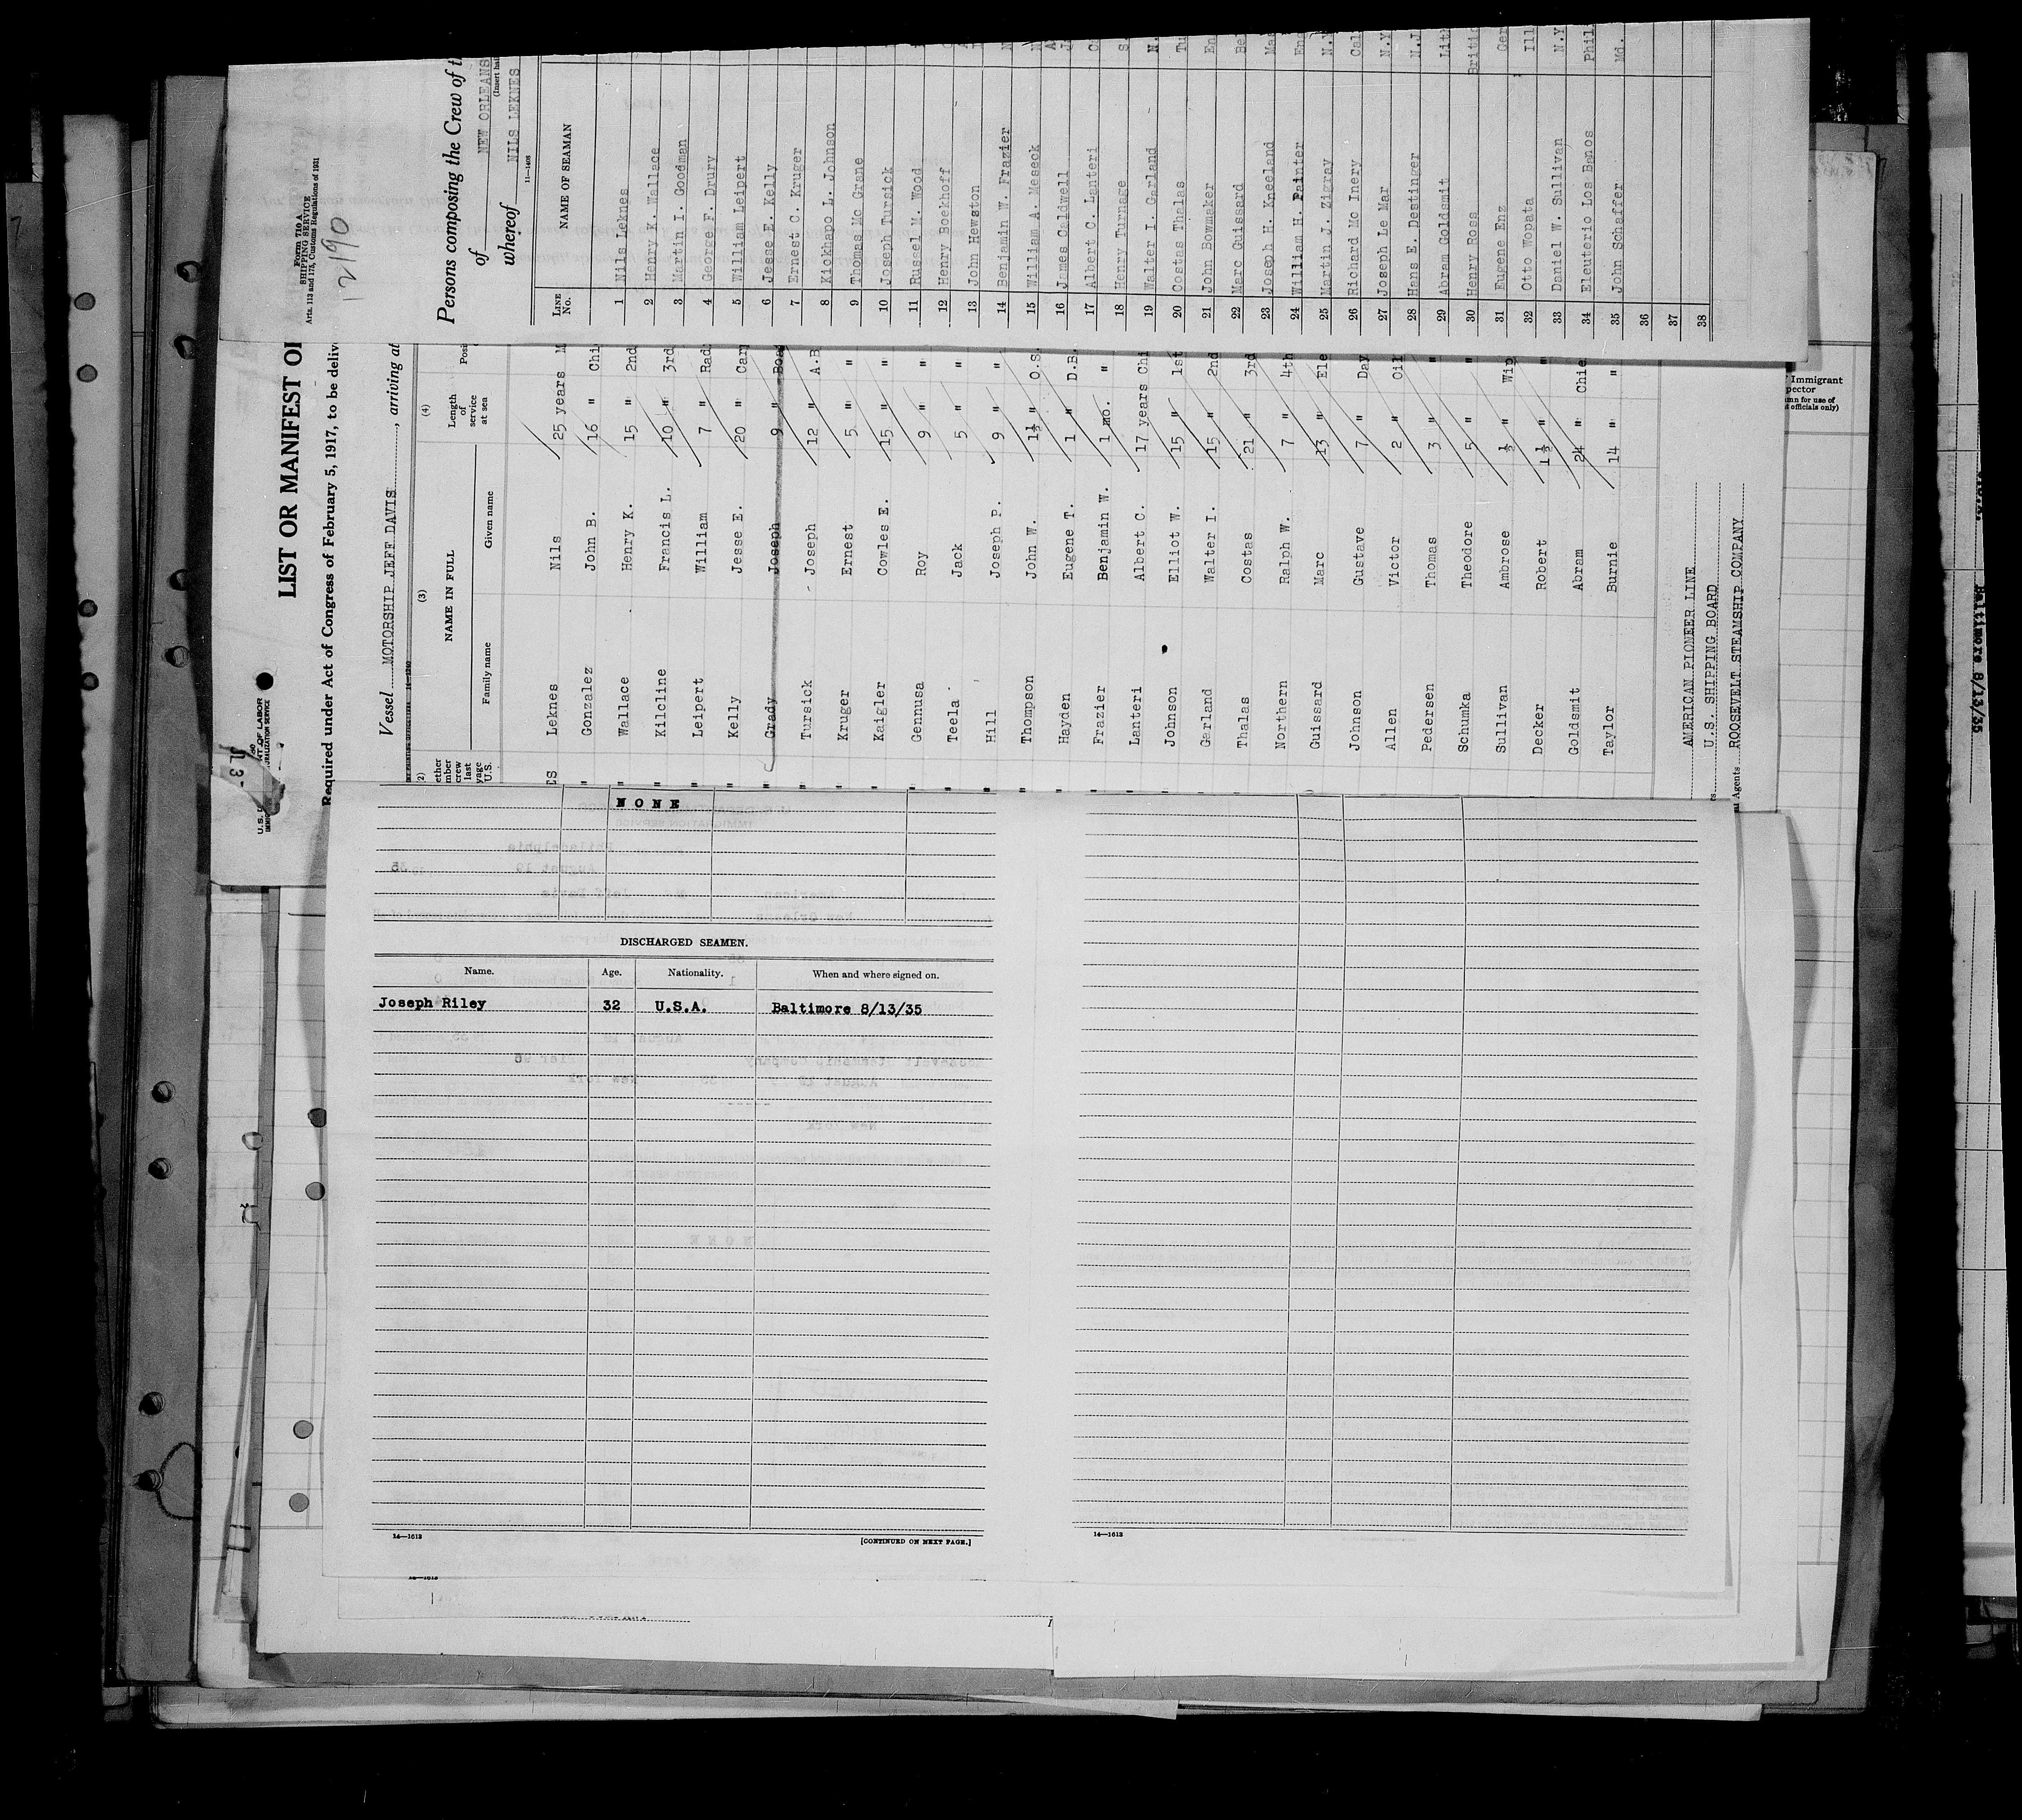 Form 710 A
SHIPPING SERVICE
Arts. 113 and 173, Customs Regulations of 1931
12190
Persons composing the Crew of
of NEW ORLEANS
whereof NILS LEKNES
11—1408
LINE No. NAME OF SEAMAN
1 Nils Leknes
2 Henry K. Wallace
3 Martin I. Goodman
4 George F. Drury
5 William Leipert
6 Jesse E. Kelly
7 Ernest C. Kruger
8 Kickhapo L. Johnson
9 Thomas Mc Grane
10 Joseph Tursick
11 Russel M. Wood
12 Henry Boekhoff
13 John Hewston
14 Benjamin W. Frazier
15 William A. Meseck
16 James Caldwell
17 Albert C. Lanteri
18 Henry Turnage
19 Walter I. Garland
20 Costas Thalas
21 John Bowmaker
22 Marc Guissard
23 Joseph H. Kneeland
24 William H. Painter
25 Martin J. Zigray
26 Richard Mc Inery
27 Joseph Le Mar
28 Hans E. Destinger
29 Abram Goldsmit
30 Henry Ross
31 Eugene Enz
32 Otto Wopata
33 Daniel W. Sullivan
34 Eleuterio Los Benos
35 John Schaffer Md.
36
37
38
LIST OR MANIFEST OF
Required under Act of Congress of February 5, 1917, to be
Vessel MOTORSHIP JEFF DAVIS, arriving at
(3) (4)
NAME IN FULL Length of service at sea
Family name Given name
Leknes Nils 25 years
Gonzalez John B. 16 "
Wallace Henry K. 15 " 2nd
Kilcline Francis L. 10 " 3rd
Leipert William 7 "
Kelly Jesse E. 20 "
Grady Joseph 9 "
Tursick Joseph 12 " A.B
Kruger Ernest 5 " "
Kaigler Cowles E. 15 " "
Gennusa Roy 9 " "
Teela Jack 5 " "
Hill Joseph P. 9 " "
Thompson John W. 1½ " O.S.
Hayden Eugene T. 1 " D.B.
Frazier Benjamin W. 1 mo. "
Lanteri Albert C. 17 years
Johnson Elliot W. 15 " 1st
Garland Walter I. 15 " 2nd
Thalas Costas 21 " 3rd
Northern Ralph W. 7 " 4th
Guissard Marc 13 "
Johnson Gustave 7 " Day
Allen Victor 2 "
Pedersen Thomas 3 " "
Schumka Theodore 5 " "
Sullivan Ambrose ½ "
Decker Robert 1½ " "
Goldsmit Abram 24 "
Taylor Burnie 14 " "
AMERICAN PIONEER LINE
U.S. SHIPPING BOARD
Agents ROOSEVELT STEAMSHIP COMPANY
NONE
DISCHARGED SEAMEN.
Name. Age. Nationality. When and where signed on.
Joseph Riley 32 U.S.A. Baltimore 8/13/35
14—1613
[CONTINUED ON NEXT PAGE.]
14—1613
Immigrant
officials only)
Baltimore 8/13/35